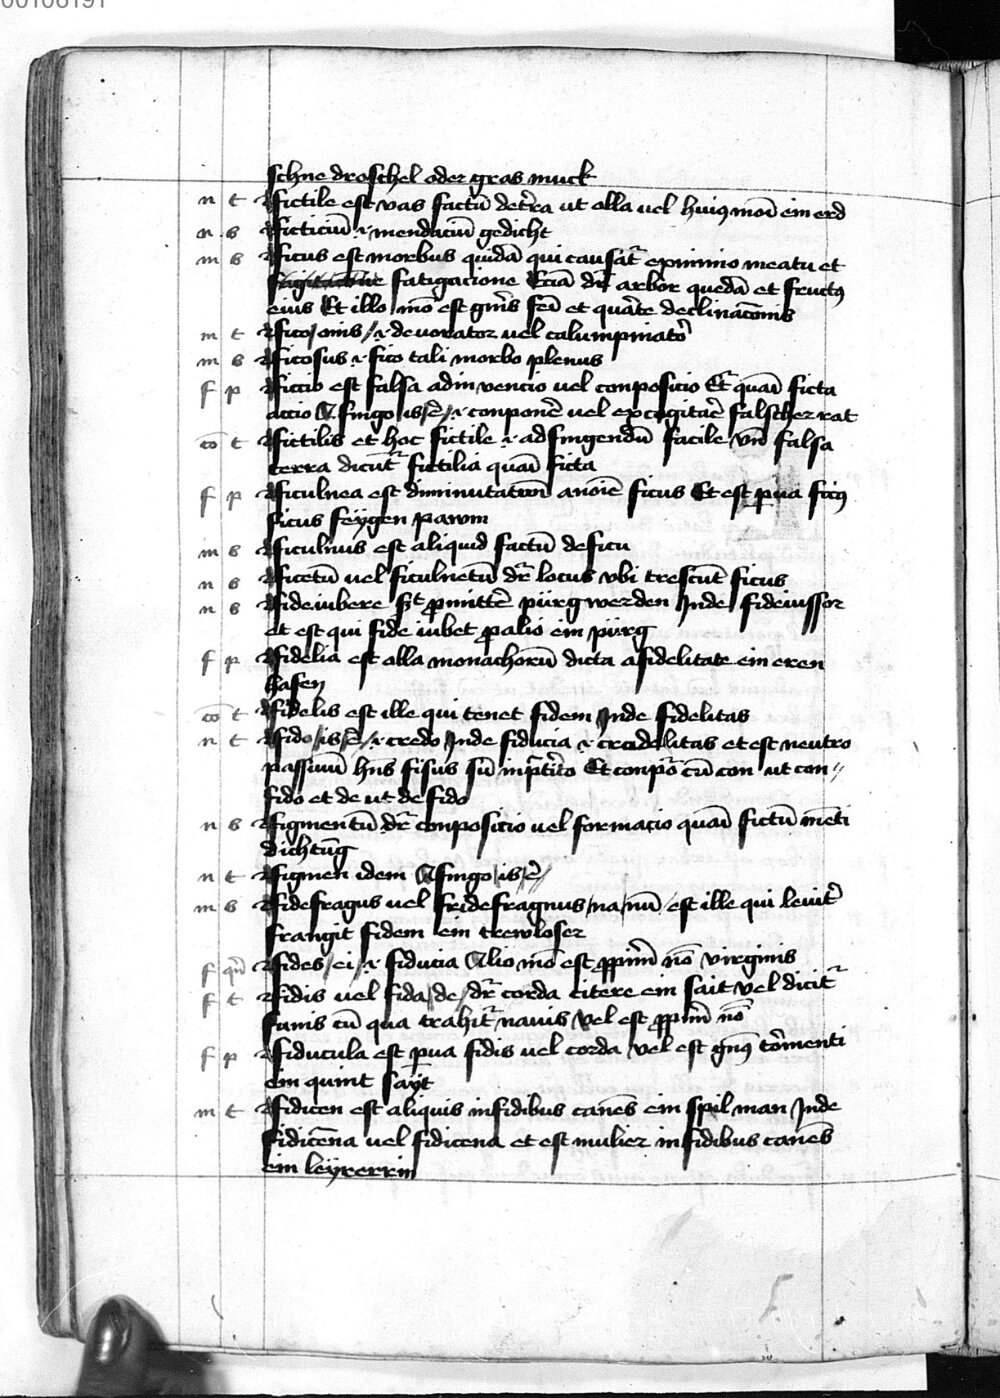 00106191
schne droschel oder gras muck
n t Fictile est vas factū de tr̄ra ut olla uel huiꝯmōi ein erd
n s Ficticiū .i. mendaciū gedicht
m s Ficus est morbus quidā qui causat̄ ex nimio meatu et
fatigacione Eciā dr̄ arbor quedā et fructꝯ
eius Et illo mō est gn̄is fēi et quārte declinacōnis
m t Fico / onis / .i. deuorator uel calumpniator̄
m s Ficosus .i. fico tali morbo plenus
f p Fictio est falsa adinuencio uel composicio Et quasi ficta
accio A fingo / is / ē̄ / .i. conponē̄ uel excogitar̄e falscher rat
cō t Fictilis et hoc fictile .i. ad fingendū facile Vn̄ falsa
terra dicūt̄ fictilia quasi ficta
f p Ficulnea est diminutatum a noīe ficus Et est ꝑua ficꝯ
ficus feÿgen pawm
m s Ficulnus est aliquid factū de ficu
n s Ficetū uel ficulnetū dr̄ locus vbi crescūt ficus
n s Fideiubere st̄ ꝓmittē̄ pürg werden Inde fideiussor
et est qui fide iubet ꝓ alio ein pürg
f p Fidelia est olla monachorū dicta a fidelitate ein eren
hafen
cō t Fidelis est ille qui tenet fidem Inde fidelitas
n t Fido / is / ē̄ / .i. credo Inde fiducia .i. crudelitas et est neutro
passiuū hn̄s fisus sū in p̄tr̄ito Et conpō̄ cū con ut con //
fido et de ut defido
n s Figmentū dr̄ composicio uel formacio quasi fictū mēti
dichtūg
n t Figmen idem A fingo / is / ē̄ //
m s Fidefragus uel fridefragnus / na / nū / est ille qui leuit̄
frangit fidem ein trewloser
f qn̄ Fides / ei / .i. fiducia Alio mō est ꝓpriū nō virginis
f t Fidis uel fida / de / dr̄ corda citere ein sait vel dicit̄
funis cū qua trahit̄ nauis Vel est ꝓpriū nō
f p Fiducula est ꝑua fidis uel corda / vel est gn̄ꝯ tor̄menti
ein quint saÿt
m t Fidicen est aliquis in fidibus canēs ein spil man Inde
Fidicēna uel fidicena et est mulier in fidibus canēs
ein leÿrerrin